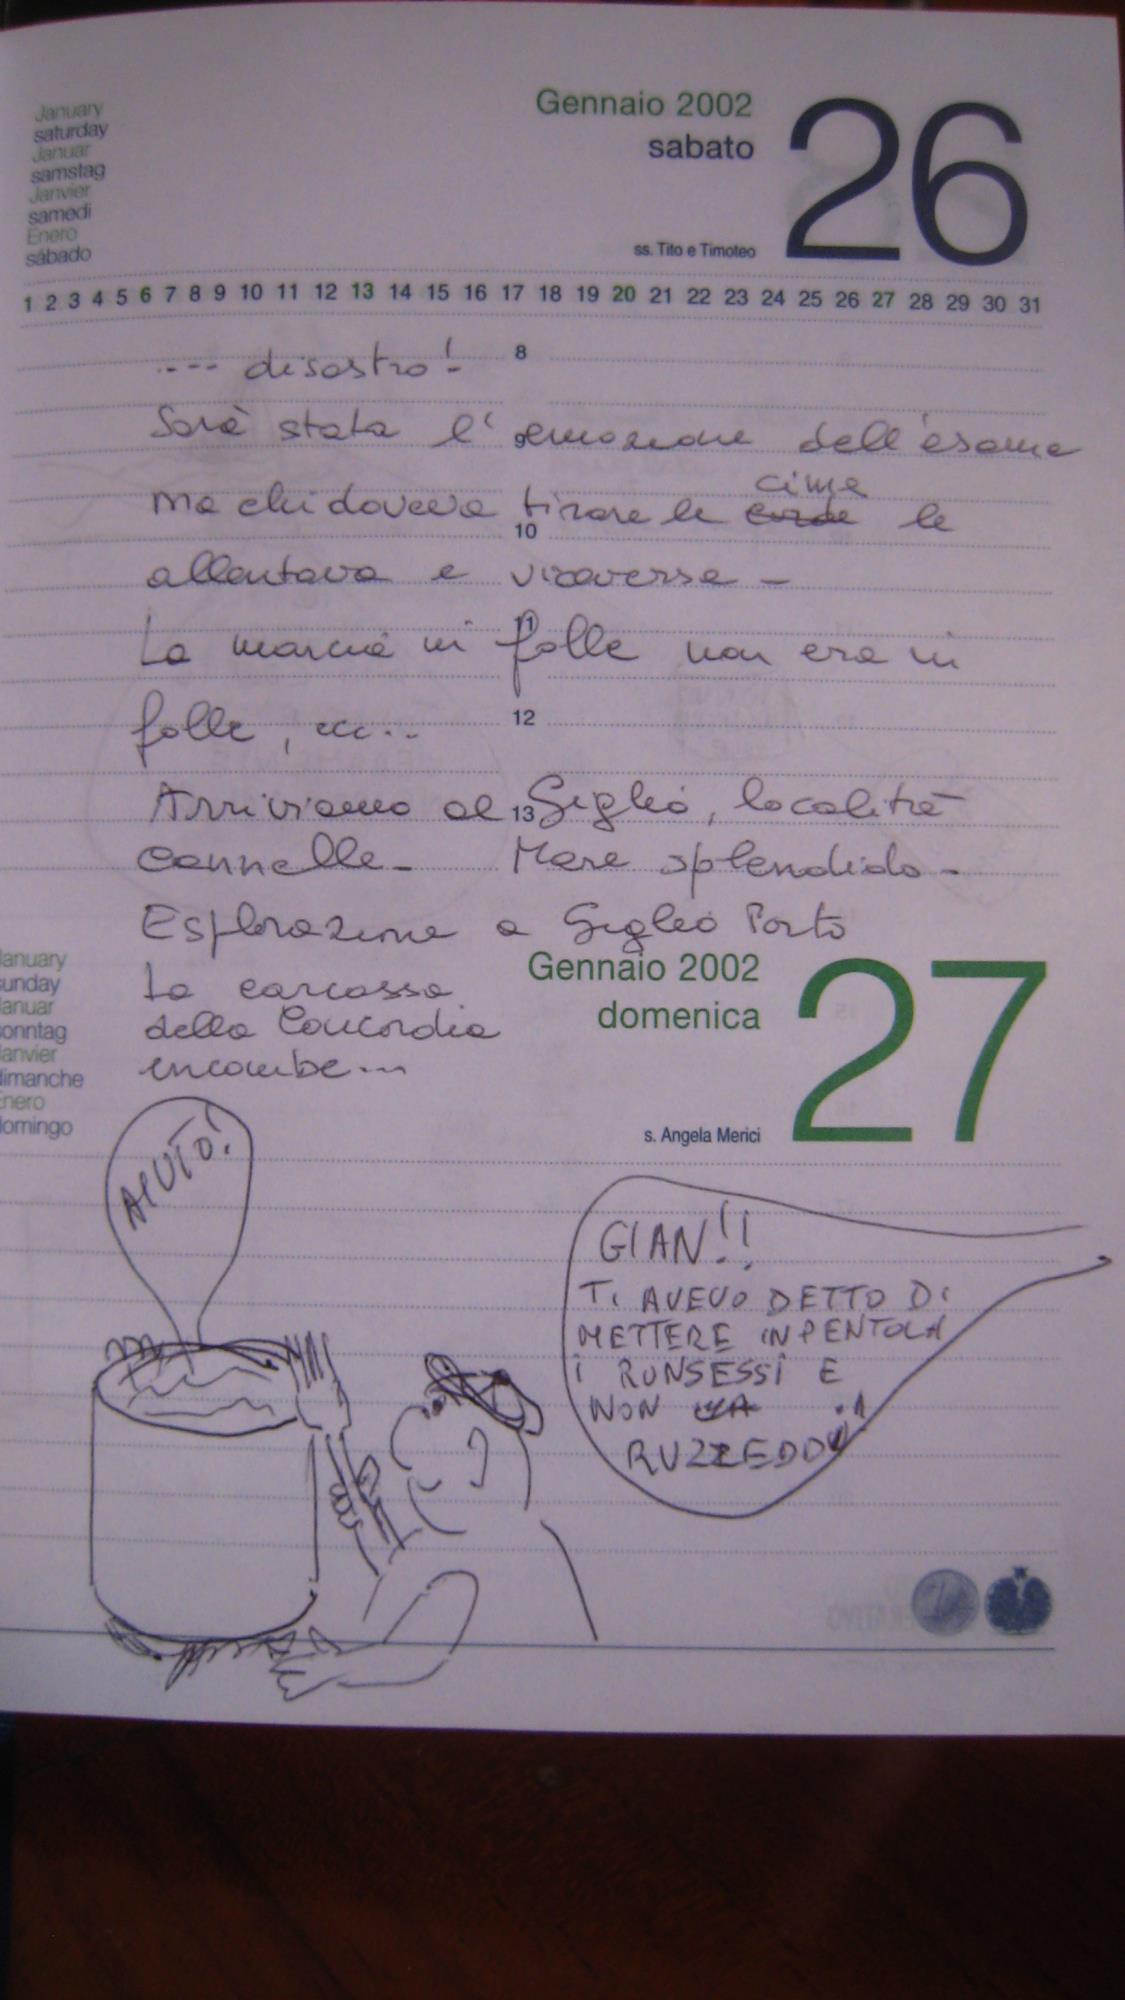 January
saturday
Januar
samstag
Janvier
samedi
Enero
sábado
Gennaio 2002
sabato
26
ss. Tito e Timoteo
1 2 3 4 5 6 7 8 9 10 11 12 13 14 15 16 17 18 19 20 21 22 23 24 25 26 27 28 29 30 31
8
---- disastro!
9
Sarà stata l'emozione dell'esame
cime
ma chi doveva tirare le corde le
10
allentava e viceversa -
11
La marcia in folle non era in
folle, ecc...
12
Arriviamo al Giglio, località
13
Cannelle - Mare splendido -
Esplorazione a Giglio Porto
La carcassa
della Concordia
incombe...
January
sunday
Januar
sonntag
Janvier
dimanche
Enero
domingo
Gennaio 2002
domenica
27
s. Angela Merici
AIUTO!
GIAN!!
TI AVEVO DETTO DI
METTERE IN PENTOLA
I RUNSESSI E
NON
RUZZEDDU!!